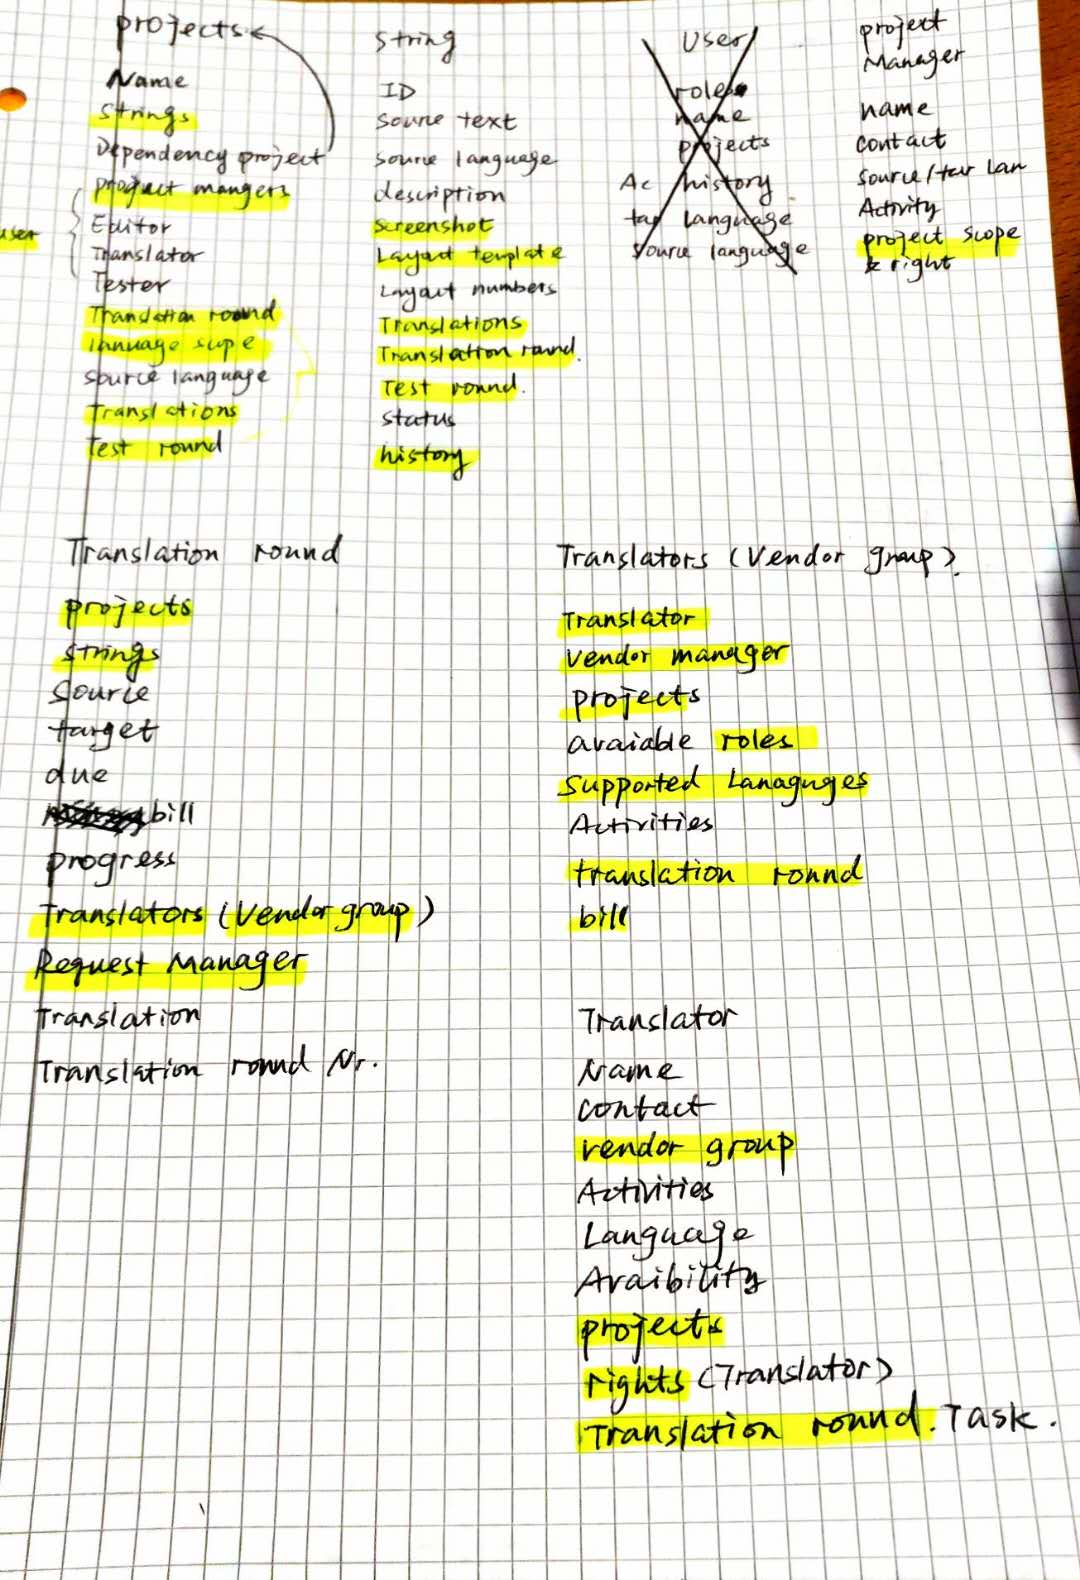 projects
Name
Strings
Dependency project
project mangers
user
Editor
Translator
Tester
Translation round
lanuage supe
source language
Translations
Test round
String
ID
Soure text
source language
description
Screenshot
Layout template
Layout numbers
Translations
Translation round.
Test round.
Status
history
User
roles
name
projects
Ac history
tag language
source language
project
Manager
name
contact
Source/tar lan
Activity
project scope
& right
Translation round
projects
strings
Source
target
due
bill
progress
Translators (Vendor group)
Request Manager
Translation
Translation round Nr.
Translators (Vendor group).
Translator
Vendor manager
projects
avaiable roles
Supported Lanaguges
Activities
translation round
bill
Translator
Name
contact
vendor group
Activities
Language
Avaibility
projects
rights (Translator)
Translation round. Task.